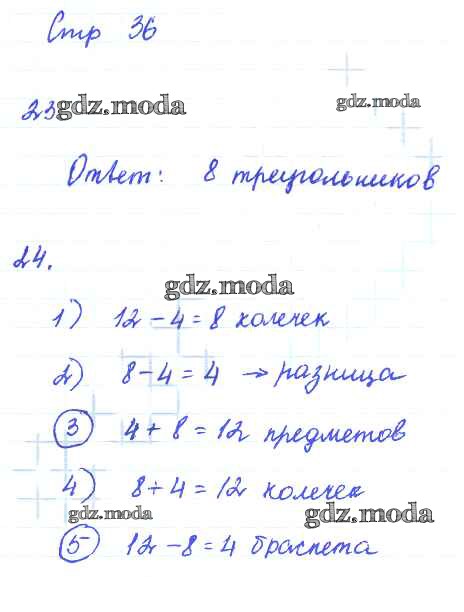 Стр 36
23 gdz.moda gdz.moda
Ответ: 8 треугольников
24.
gdz.moda
1) 12 - 4 = 8 колечек
2) 8 - 4 = 4 → разница
3 4 + 8 = 12 предметов
4) 8 + 4 = 12 колечек
gdz.moda gdz.moda
5 12 - 8 = 4 браслета